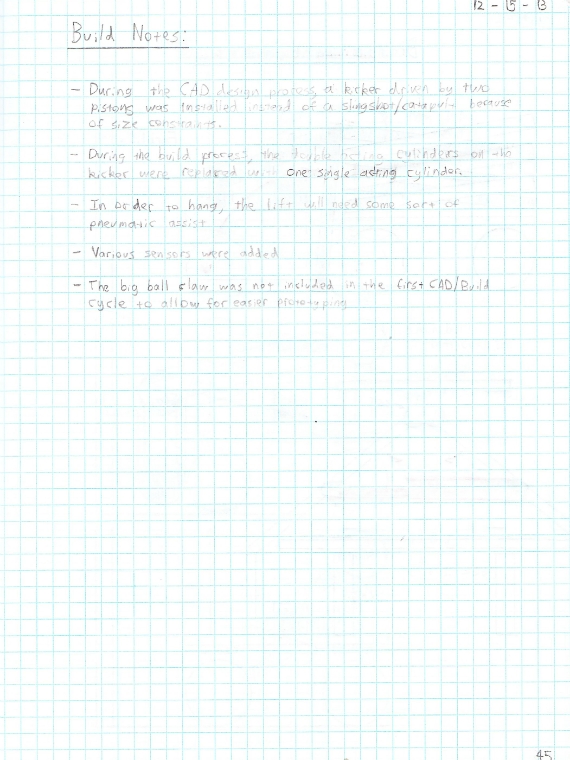 12 - 15 - 13
Build Notes:
- During the CAD design process, a kicker driven by two
pistons was installed instead of a slingshot/catapult because
of size constraints.
- During the build process, the double acting cylinders on the
kicker were replaced with one single acting cylinder.
- In order to hang, the lift will need some sort of
pneumatic assist
- Various sensors were added
- The big ball claw was not included in the first CAD/Build
cycle to allow for easier prototyping
45